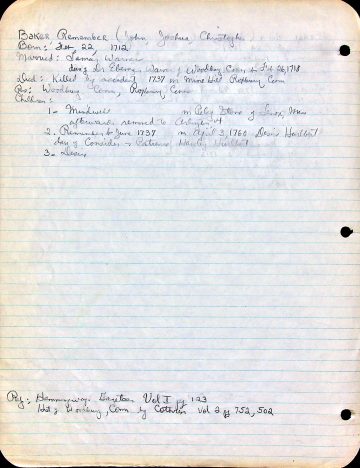 Baker Remember (John, Joshua, Christopher
Born: Feb 22, 1712
Married: Tamar Warner
dau of Dr Ebenezer Warner of Woodbury Conn b
Died: Killed by accident 1737 in Mine Hill Roxbury Conn
Res: Woodbury Conn, Roxbury Conn
Children:
1- m of Lenox, Mass
afterwards removed to
2. Remember b June 1737 m April 3, 1760 Hurlbut
day of Consider & Patience Hawley Hurlbut
3-
Ref: Hemmingway Gazeteer Vol I pg 123
Hist of Woodbury, Conn by Cothren vol 2 pg 752, 502